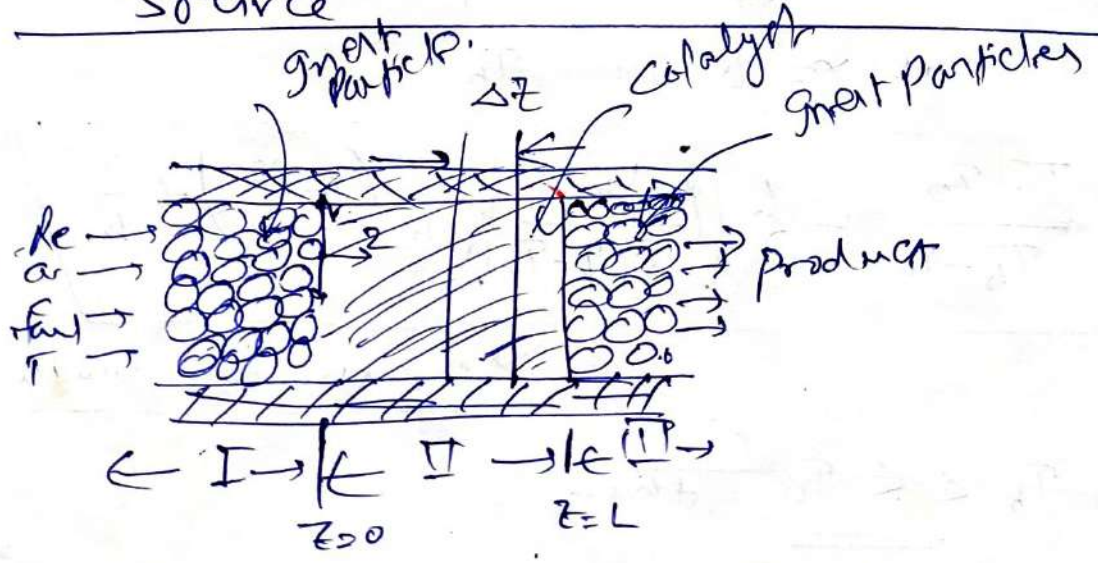 Source
Inert Particle.
ΔZ
Catalyst
Inert Particles
Re
a
c
tant
T
r
Z
Product
I
II
III
Z=0
Z=L